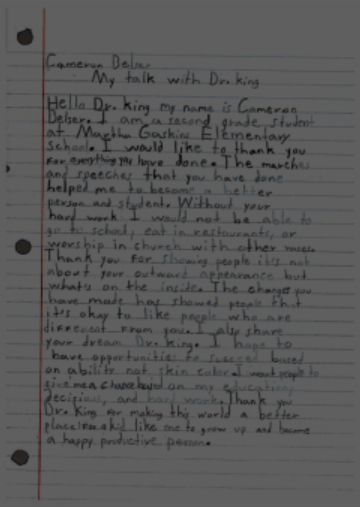 Cameron Delser
My talk with Dr. king
Hello Dr. king my name is Cameron
Delser. I am a second grade student
at Martha Gaskins Elementary
School. I would like to thank you
For everything you have done. The marches
and speeches that you have done
helped me to become a better
person and student. Without your
hard work I would not be able to
go to school, eat in restaurants, or
worship in church with other races.
Thank you For showing people it's not
about your outward appearance but
what's on the inside. The changes you
have made has showed people that
it's okay to like people who are
different From you. I also share
your dream Dr. king. I hope to
have opportunities to succeed based
on ability not skin color. I want people to
give me a chance based on my education,
decisions, and hard work. Thank you
Dr. King For making this world a better
place For a kid like me to grow up and become
a happy productive person.